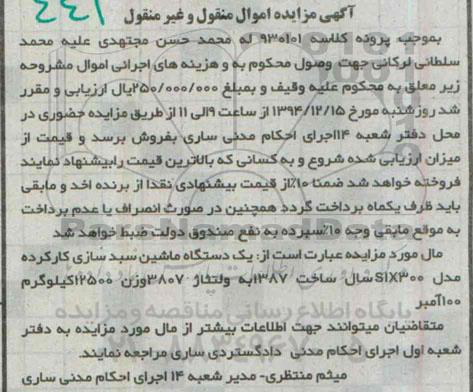 ۴۴۱
آگهی مزایده اموال منقول و غیر منقول
بموجب پرونه کلاسه ۹۳۰۱۰۱ له محمد حسن مجتهدی علیه محمد
سلطانی لرکانی جهت وصول محکوم به و هزینه های اجرائی اموال مشروحه
زیر معلق به محکوم علیه وقیف و بمبلغ ۲۵۰/۰۰۰/۰۰۰ریال ارزیابی و مقرر
شد روزشنبه مورخ ۱۳۹۴/۱۲/۱۵ از ساعت ۹الی ۱۱ از طریق مزایده حضوری در
محل دفتر شعبه ۱۴اجرای احکام مدنی ساری بفروش برسد و قیمت از
میزان ارزیابی شده شروع و به کسانی که بالاترین قیمت رابیشنهاد نمایند
فروخته خواهد شد ضمنا ۱۰٪از قیمت بیشنهادی نقدا از برنده اخد و مابقی
باید ظرف یکماه برداخت گردد همچنین در صورت انصراف یا عدم برداخت
به موقع مابقی وجه ۱۰٪سبرده به نفع صندوق دولت ضبط خواهد شد
مال مورد مزایده عبارت است از: یک دستگاه ماشین سبد سازی کارکرده
مدل SIX۳۰۰سال ساخت ۱۳۸۷به ولتار ۳۸۰۷وزن ۱۲۵۰۰کیلوگرم
۱۰۰آمبر
متقاضیان میتوانند جهت اطلاعات بیشتر از مال مورد مزایده به دفتر
شعبه اول اجرای احکام مدنی دادگستردی ساری مراجعه نمایند.
میثم منتظری- مدیر شعبه ۱۴ اجرای احکام مدنی ساری
پایگاه اطلاع رسانی مناقصه و مزایده